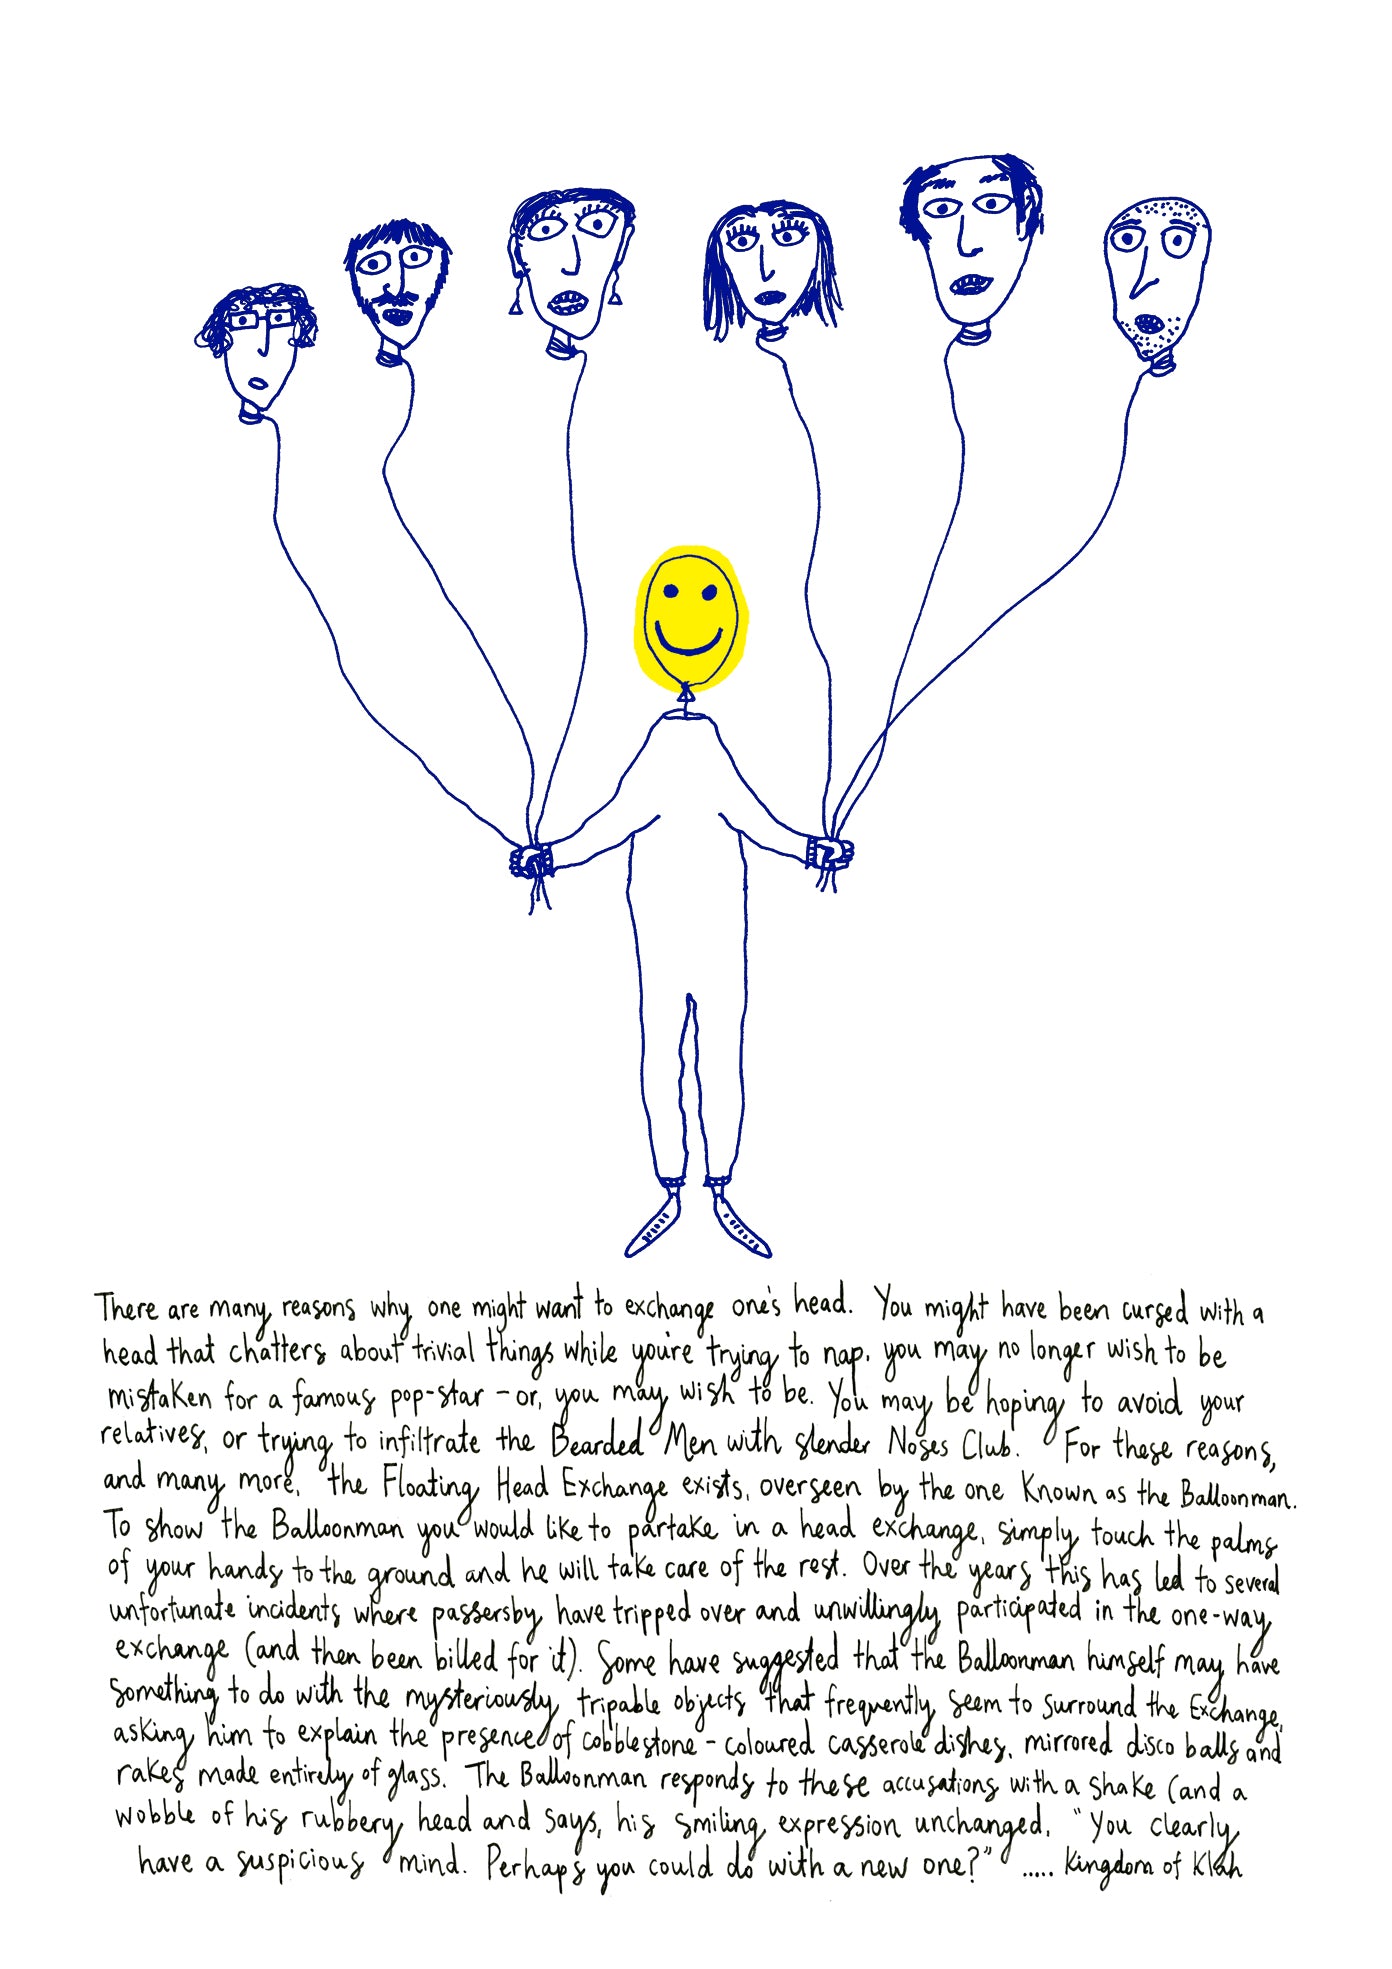 There are many reasons why one might want to exchange one's head. You might have been cursed with a
head that chatters about trivial things while you're trying to nap, you may no longer wish to be
mistaken for a famous pop-star - or, you may wish to be. You may be hoping to avoid your
relatives, or trying to infiltrate the Bearded Men with slender Noses Club. For these reasons,
and many more, the Floating Head Exchange exists, overseen by the one Known as the Balloonman.
To show the Balloonman you would like to partake in a head exchange, simply touch the palms
of your hands to the ground and he will take care of the rest. Over the years this has led to several
unfortunate incidents where passersby have tripped over and unwillingly participated in the one-way
exchange (and then been billed for it). Some have suggested that the Balloonman himself may have
something to do with the mysteriously tripable objects that frequently seem to surround the Exchange,
asking him to explain the presence of cobblestone-coloured casserole dishes, mirrored disco balls and
rakes made entirely of glass. The Balloonman responds to these accusations with a shake (and a
wobble of his rubbery head and says, his smiling expression unchanged, "You clearly
have a suspicious mind. Perhaps you could do with a new one?" ..... Kingdom of Klah